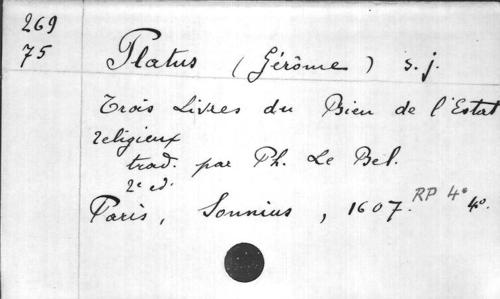 269
75
Platus (Gérôme) s.j.
Trois Livres du Bien de l'Estat
religieux
trad. par Ph. Le Bel.
2e ed.
Paris, Sonnius, 1607. RP 4° 4°.